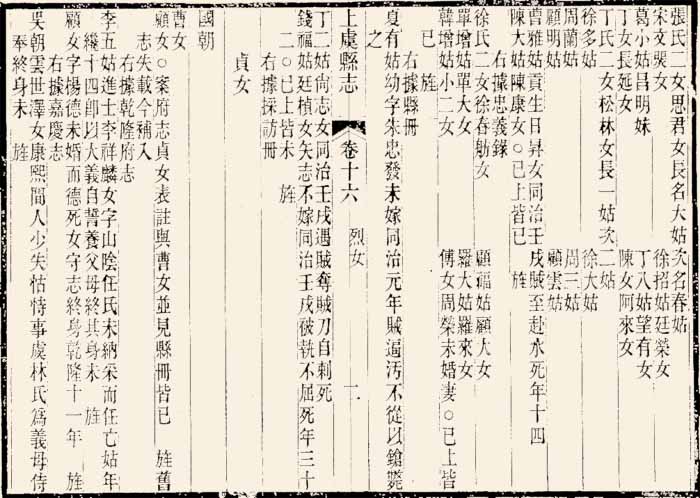 張氏二女思君女長名大姑次名春姑
宋文奬女　徐招姑廷榮女
葛小姑昌明妹　丁八姑望有女
丁女長延女　陳女阿來女
丁氏二女松林女長一姑次二姑
徐多姑　徐大姑
周蘭姑　周三姑
顧明姑　顧雲姑
曹雅姑貢生日昇女同治壬戌賊至赴水死年十四
陳大姑陳康女○已上皆已　旌
右據忠義錄
徐氏二女徐春舫女　顧福姑顧大女
單增姑單大女　羅大姑羅來女
韓增姑小二女　傅女周榮未婚妻○已上皆
已　旌
右據縣冊
夏有姑幼字朱忠發未嫁同治元年賊逼汚不從以鎗斃
之
上虞縣志　卷十六　烈女　二
丁二姑尙志女同治壬戌遇賊奪賊刀自刺死
錢福姑廷楨女矢志不嫁同治壬戌破執不屈死年三十
二○已上皆未　旌
右據採訪冊
貞女
國朝
曹女
顧女○案府志貞女表註與曹女並見縣冊皆已　旌舊
志失載今補入
右據乾隆府志
李五姑進士李祥麟女字山陰任氏未納采而任亡姑年
纔十四卽以大義自誓養父母終其身未　旌
右據嘉慶志
顧女字楊德未婚而德死女守志終身乾隆十一年　旌
吳朝雲世澤女康熙間人少失怙恃事虞林氏爲義母侍
奉終身未　旌